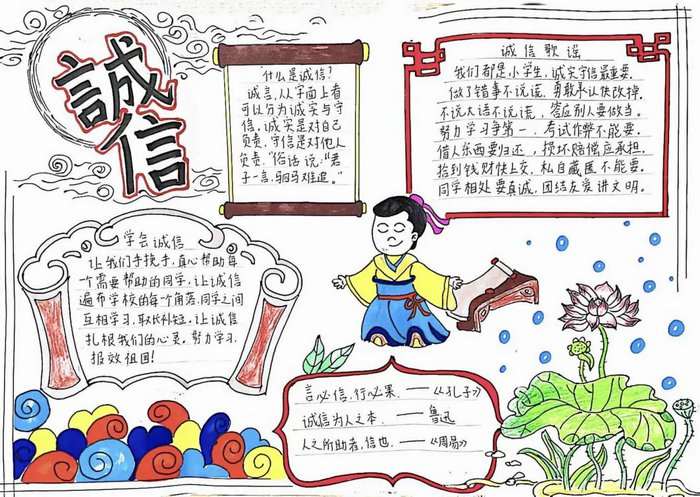 誠信
什么是诚信?
诚言,从字面上看
可以分为诚实与守
信,诚实是对自己
负责,守信是对他人
负责。"俗话说:"君
子一言,驷马难追。"
诚信歌谣
我们都是小学生,诚实守信最重要。
做了错事不说谎,勇敢承认快改掉。
不说大话不说谎,答应别人要做当。
努力学习争第一,考试作弊不能要。
借人东西要归还,损坏赔偿应承担。
拾到钱财快上交,私自藏匿不能要。
同学相处要真诚,团结友爱讲文明。
学会诚信
让我们手挽手,真心帮助每
个需要帮助的同学,让诚信
遍布学校的每个角落,同学之间
互相学习,取长补短,让诚信
扎根我们的心灵,努力学习,
报效祖国!
言必信,行必果.——《孔子》
诚信为人之本.——鲁迅
人之所助者,信也.——《周易》